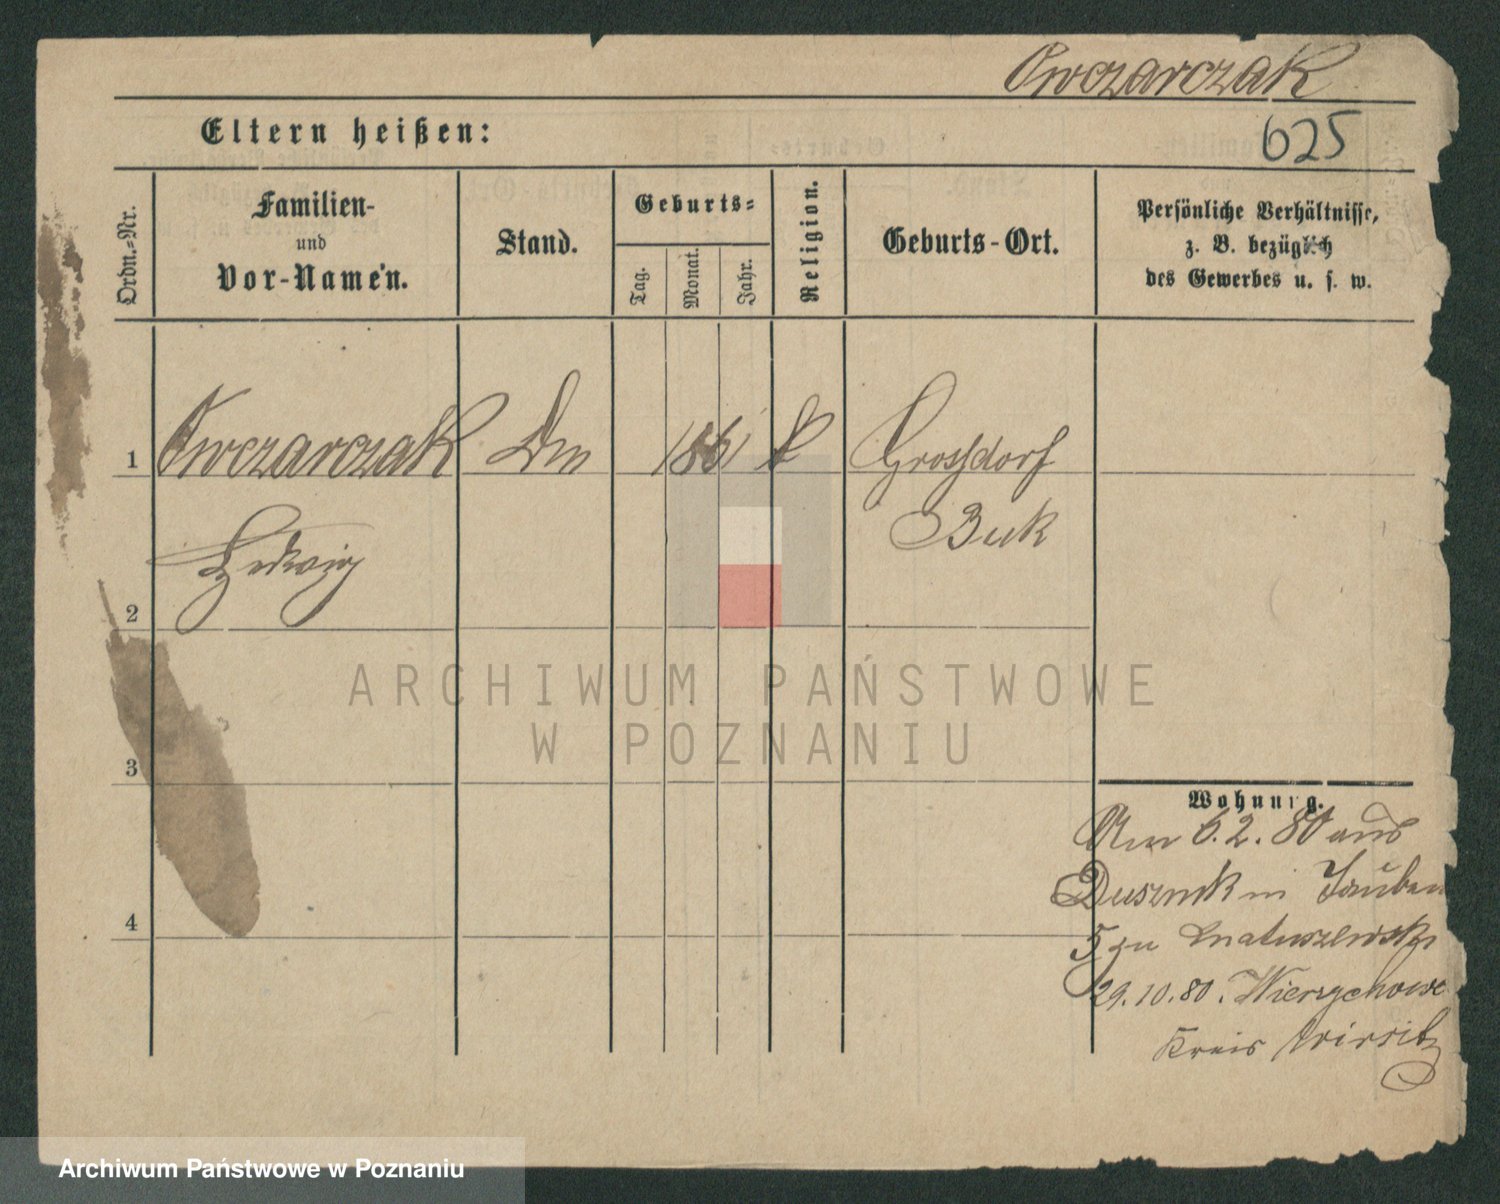 Owczarczak
Eltern heißen:
625
Ordn.-Nr.
Familien-
und
Vor-Namen.
Stand.
Geburts-
Tag.
Monat.
Jahr.
Religion.
Geburts-Ort.
Persönliche Verhältnisse,
z. B. bezüglich
des Gewerbes u. s. w.
1
Owczarczak
186
k
Grossdorf
Buk
Hedwig
2
ARCHIWUM PAŃSTWOWE
W POZNANIU
3
Wohnung.
Am 6.2.80 aus
Dusznik in Tauben
5 zu Matuszewski
4
29.10.80. Wierzchowe
Kreis Wirsitz
Archiwum Państwowe w Poznaniu